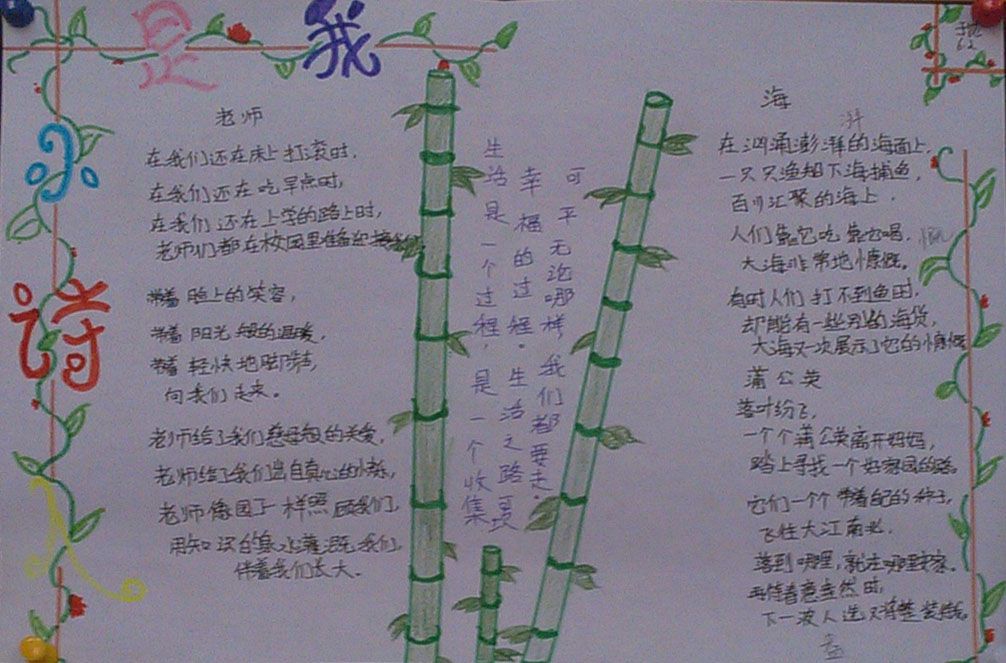 我是
小诗
老师
在我们还在床上打滚时，
在我们还在吃早点时，
在我们还在上学的路上时，
老师们都在校园里准备迎接我们
带着脸上的笑容，
带着阳光般的温暖，
带着轻快地脚步声，
向我们走来。
老师给了我们慈母般的关爱，
老师给了我们出自真心的
老师像园丁一样照顾我们，
用知识的泉水灌溉我们，
伴着我们长大。
生活是一个过程，是一个收集
幸福的过程。生活之路
可平无论哪样，我们都要走。
海
湃
在汹涌澎湃的海面上，
一只只渔船下海捕鱼，
百川汇聚的海上，
人们靠它吃靠它喝，
慨
大海非常地慷慨。
有时人们打不到鱼时，
却能有一些别的海货，
大海又一次展示了它的慷慨
蒲公英
落叶纷飞，
一个个蒲公英离开妈妈，
踏上寻找一个好家园的路。
它们一个个带着自己的种子，
飞往大江南北，
落到哪里，就在哪里安家。
再待春意盎然时，
下一波人选又将整装待
盎